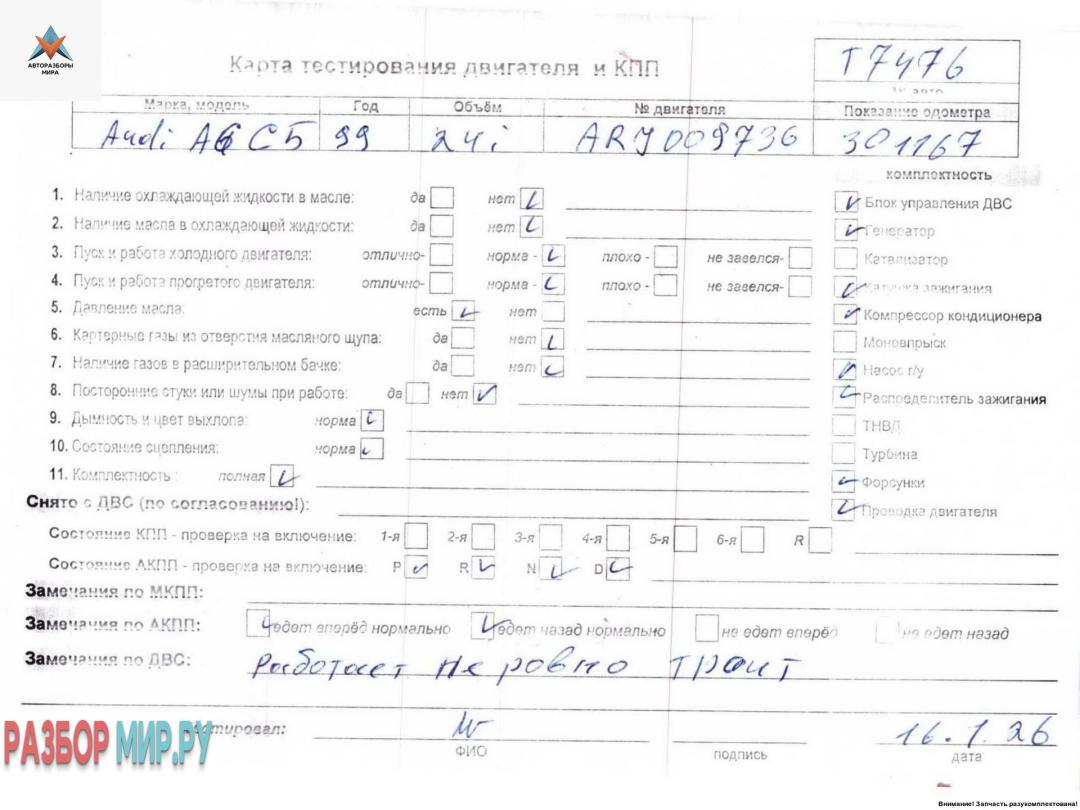 АВТОРАЗБОРЫ
МИРА
Карта тестирования двигателя и КПП
Т7476
№ авто
Марка, модель Год Объём № двигателя Показание одометра
Audi A6 C5 99 2.4i ARJ009736 301167
комплектность
1. Наличие охлаждающей жидкости в масле: да нет Блок управления ДВС
2. Наличие масла в охлаждающей жидкости: да нет Генератор
3. Пуск и работа холодного двигателя: отлично- норма - плохо - не завелся- Катализатор
4. Пуск и работа прогретого двигателя: отлично- норма - плохо - не завелся- Катушка зажигания
5. Давление масла: есть нет Компрессор кондиционера
6. Картерные газы из отверстия масляного щупа: да нет Моновпрыск
7. Наличие газов в расширительном бачке: да нет Насос г/у
8. Посторонние стуки или шумы при работе: да нет Распределитель зажигания
9. Дымность и цвет выхлопа: норма ТНВД
10. Состояние сцепления: норма Турбина
11. Комплектность : полная Форсунки
Снято с ДВС (по согласованию!): Проводка двигателя
Состояние КПП - проверка на включение: 1-я 2-я 3-я 4-я 5-я 6-я R
Состояние АКПП - проверка на включение: P R N D
Замечания по МКПП:
Замечания по АКПП: едет вперёд нормально едет назад нормально не едет вперёд не едет назад
Замечания по ДВС: Работает не ровно троит
РАЗБОРМИР.РУ
16.1.26
ФИО подпись дата
Внимание! Запчасть разукомплектована!